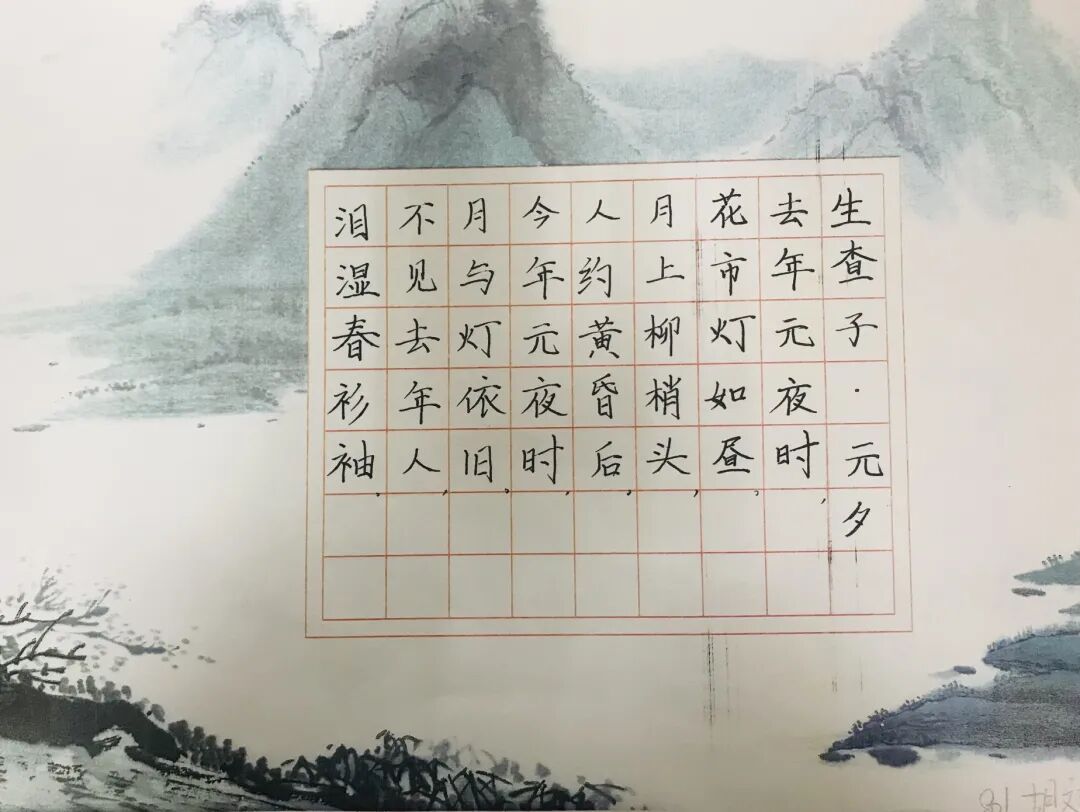 生查子·元夕
去年元夜时,
花市灯如昼,
月上柳梢头,
人约黄昏后,
今年元夜时,
月与灯依旧,
不见去年人,
泪湿春衫袖,